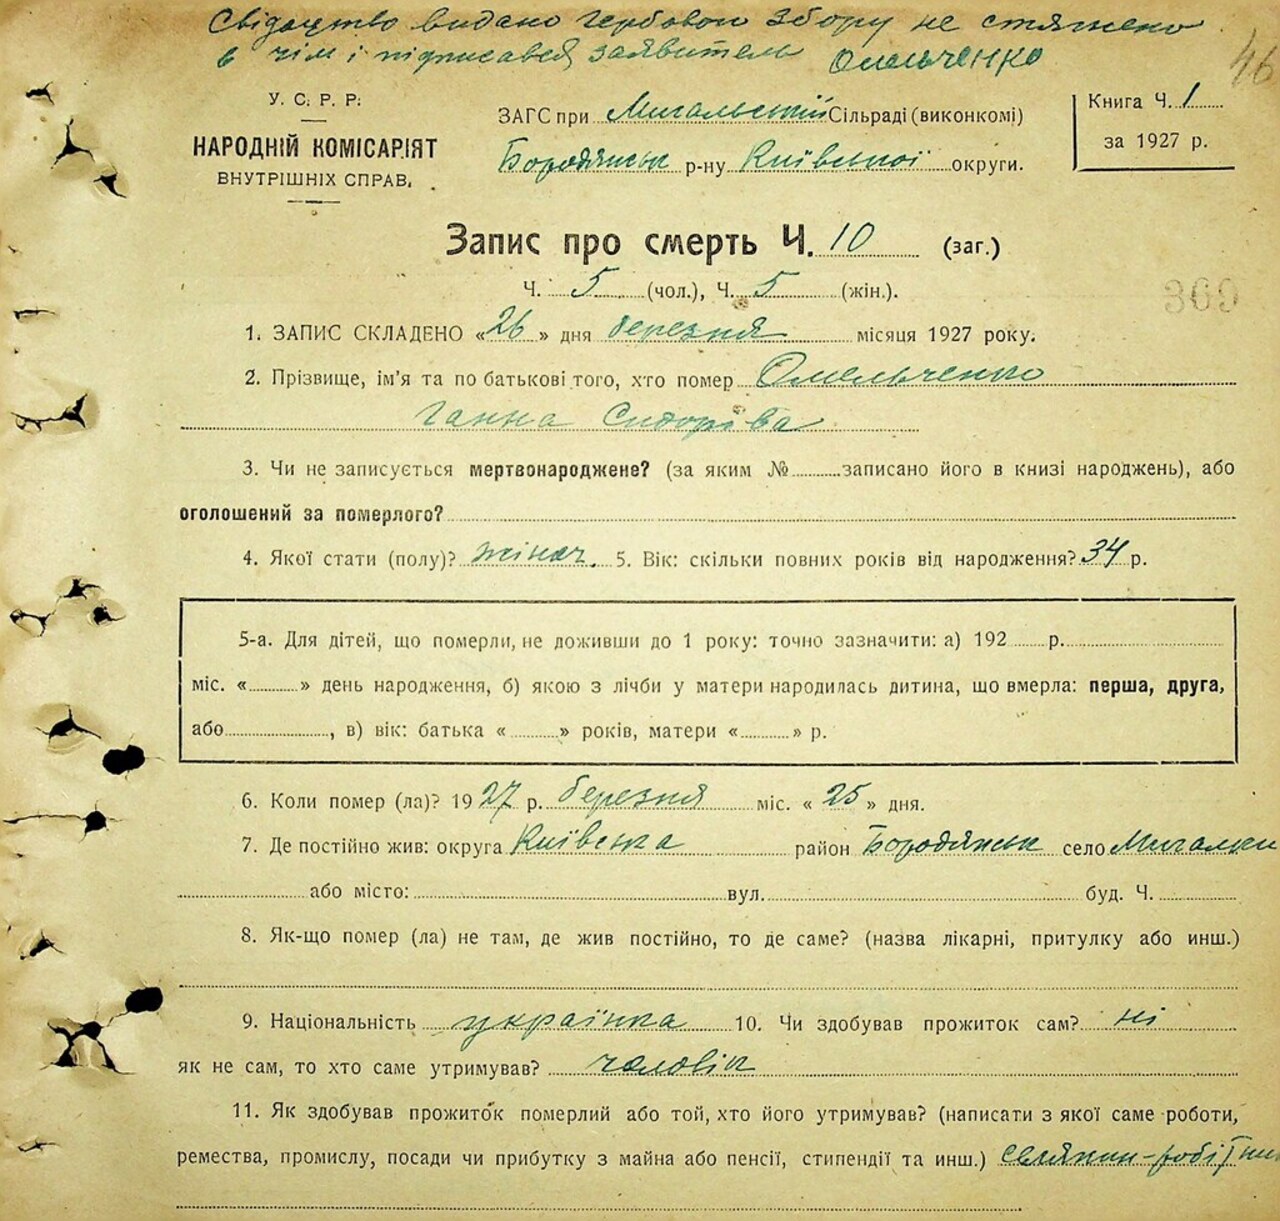 Свідоцтво видано гербовой збору не стяжено
в чім і підписався заявитель Омельченко
46
У. С. Р. Р.
НАРОДНІЙ КОМІСАРІЯТ
ВНУТРІШНІХ СПРАВ.
ЗАГС при Мигальській Сільраді (виконкомі)
Бородянськ р-ну Київської округи.
Книга Ч. 1
за 1927 р.
Запис про смерть Ч. 10 (заг.)
Ч. 5 (чол.), Ч. 5 (жін.).
369
1. ЗАПИС СКЛАДЕНО «26» дня березня місяця 1927 року.
2. Прізвище, ім'я та по батькові того, хто помер Омельченко
Ганна Сидорівна
3. Чи не записується мертвонароджене? (за яким № записано його в книзі народжень), або
оголошений за померлого?
4. Якої стати (полу)? жіноч. 5. Вік: скільки повних років від народження? 34 р.
5-а. Для дітей, що померли, не доживши до 1 року: точно зазначити: а) 192 р.
міс. « » день народження, б) якою з лічби у матери народилась дитина, що вмерла: перша, друга,
або , в) вік: батька « » років, матери « » р.
6. Коли помер (ла)? 1927 р. березня міс. «25» дня.
7. Де постійно жив: округа Київська район Бородянськ село Мигалки
або місто: вул. буд. Ч.
8. Як-що помер (ла) не там, де жив постійно, то де саме? (назва лікарні, притулку або инш.)
9. Національність українка 10. Чи здобував прожиток сам? ні
як не сам, то хто саме утримував? чоловік
11. Як здобував прожиток померлий або той, хто його утримував? (написати з якої саме роботи,
ремества, промислу, посади чи прибутку з майна або пенсії, стипендії та инш.)